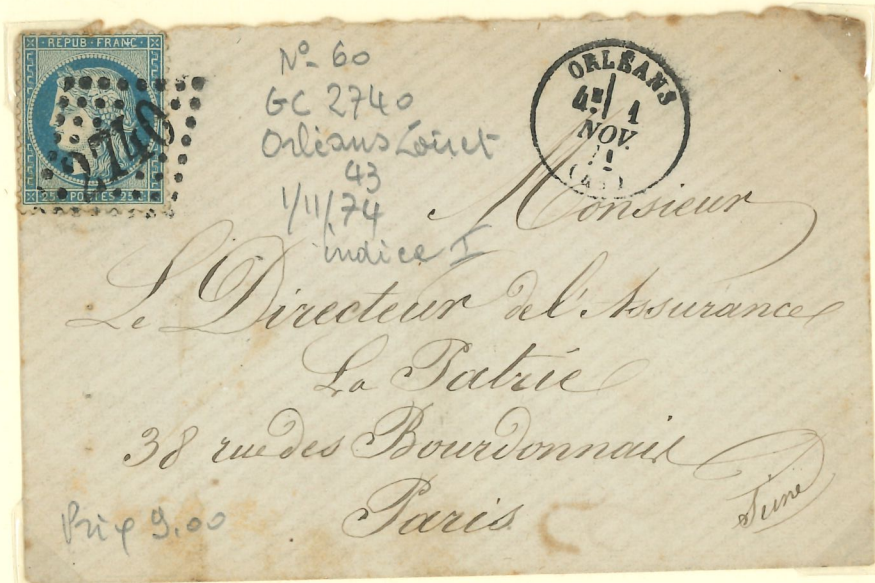 REPUB · FRANC ·
25 POSTES 25
2740
Nº 60
GC 2740
Orléans Loiret
43
1/11/74
indice I
ORLÉANS
4E 1
NOV.
Monsieur
Le Directeur de l'Assurance
La Patrie
38 rue des Bourdonnais
Paris
Prix 9.00